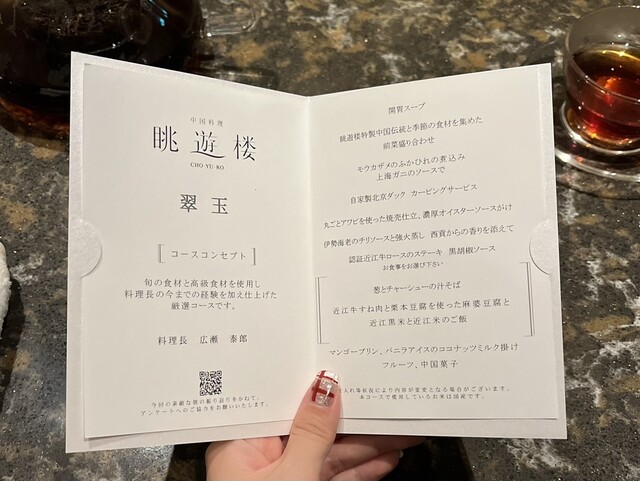 中国料理
眺遊楼
CHO-YU-RO
翠玉
コースコンセプト
旬の食材と高級食材を使用し
料理長の今までの経験を加え仕上げた
厳選コースです。
料理長 広瀬 泰郎
今回の素敵な旅の振り返りをかねて、
アンケートへのご協力をお願いいたします。
開胃スープ
眺遊楼特製中国伝統と季節の食材を集めた
前菜盛り合わせ
モウカザメのふかひれの煮込み
上海ガニのソースで
自家製北京ダック カービングサービス
丸ごとアワビを使った焼売仕立、濃厚オイスターソースがけ
伊勢海老のチリソースと強火蒸し 西貢からの香りを添えて
認証近江牛ロースのステーキ 黒胡椒ソース
お食事をお選び下さい
葱とチャーシューの汁そば
近江牛すね肉と栗本豆腐を使った麻婆豆腐と
近江黒米と近江米のご飯
マンゴープリン、バニラアイスのココナッツミルク掛け
フルーツ、中国菓子
入れ等状況により内容が変更となる場合がございます。
本コースで使用しているお米は国産です。